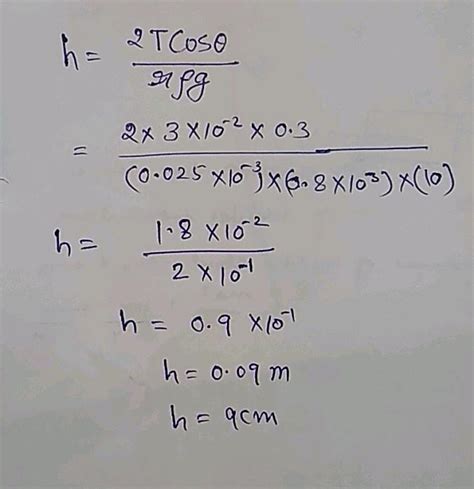 h = 2TCosθ / rρg
= 2 × 3 × 10⁻² × 0.3 / (0.025 × 10⁻³) × (0.8 × 10³) × (10)
h = 1.8 × 10⁻² / 2 × 10⁻¹
h = 0.9 × 10⁻¹
h = 0.09 m
h = 9cm